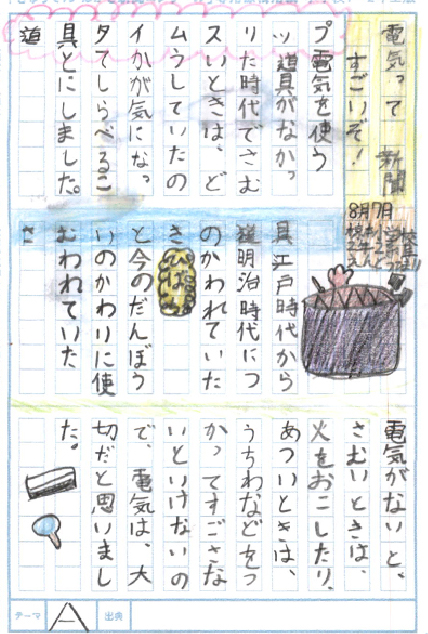 電気って
すごいぞ!
新聞
8月7日
道具タイムスリップ
電気を使う
道具がなかっ
た時代でさむ
いときは、ど
うしていたの
かが気になっ
てしらべるこ
とにしました。
さむいときの道具
江戸時代から
明治時代につ
かわれていた
ひばち
今のだんぼう
のかわりに使
われていた
電気がないと、
さむいときは、
火をおこしたり、
あついときは、
うちわなどをつ
かってすごさな
いといけないの
で、電気は、大
切だと思いまし
た。
テーマ
A
出典